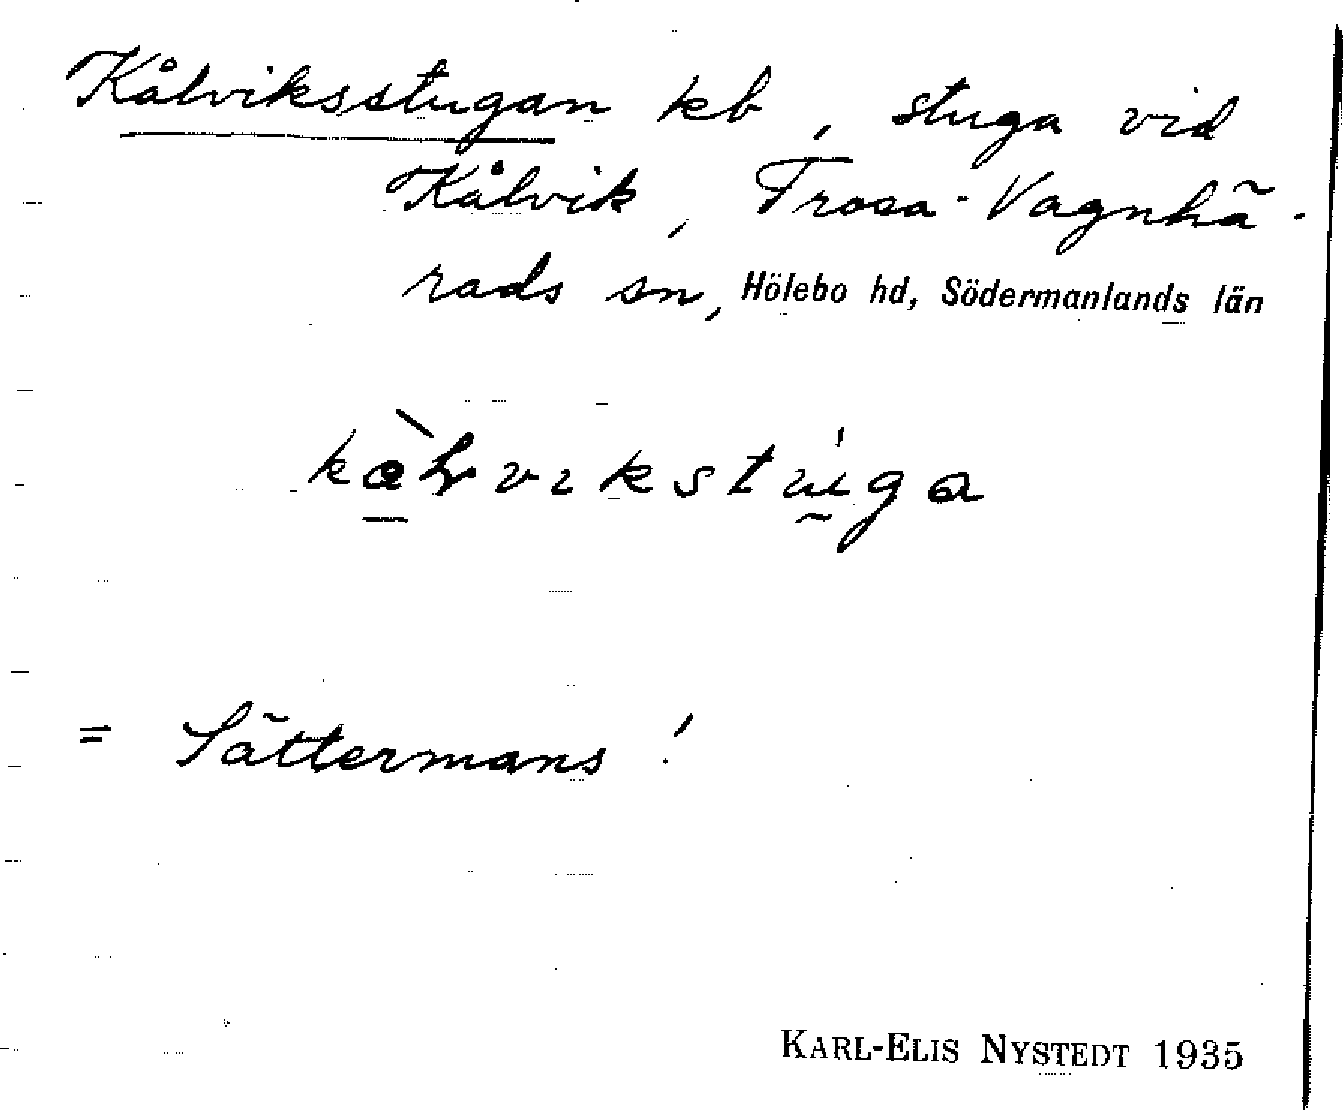 Kålviksstugan kb, stuga vid
Kålvik, Trosa-Vagnhä-
rads sn, Hölebo hd, Södermanlands län
= Sättermans!
KARL-ELIS NYSTEDT 1935